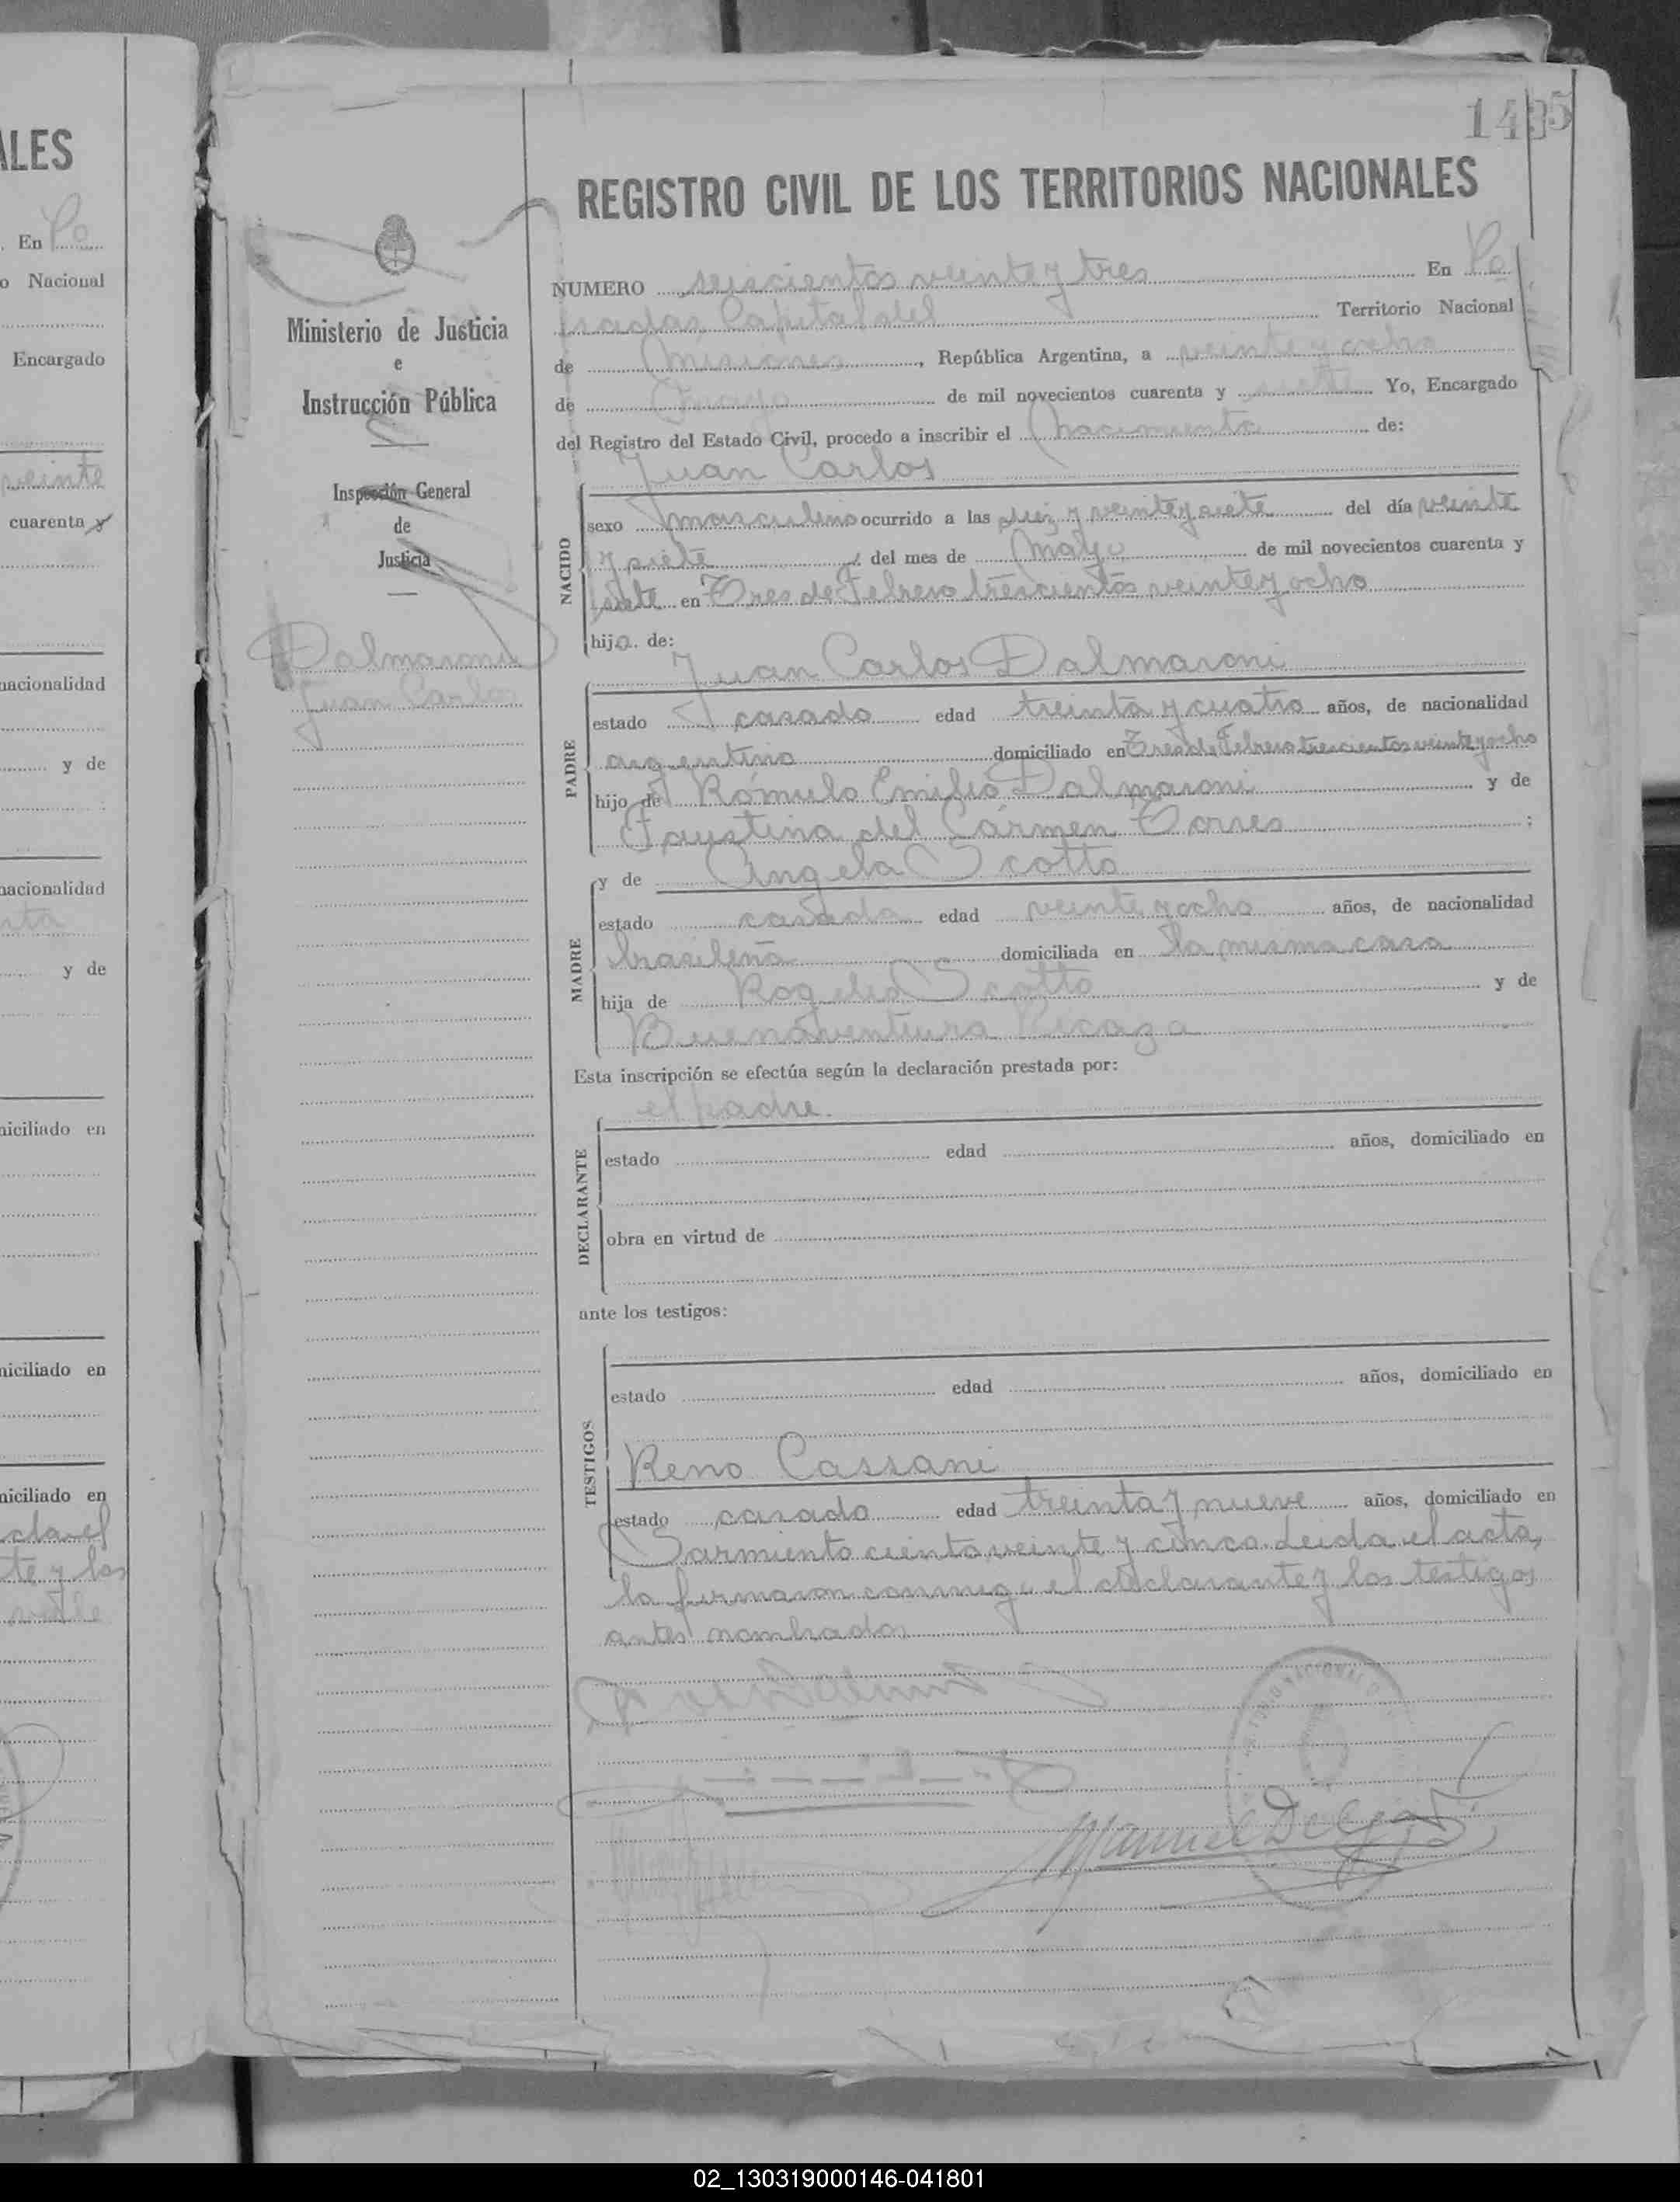 ALES
En Po
o Nacional
Encargado
veinte
cuarenta y
nacionalidad
y de
nacionalidad
y de
miciliado en
miciliado en
miciliado en
te y los
REGISTRO CIVIL DE LOS TERRITORIOS NACIONALES
Ministerio de Justicia
e
Instrucción Pública
Inspección General
de
Justicia
Dalmaroni
Juan Carlos
NUMERO seiscientos veinte y tres En Po
sadas, Capital del Territorio Nacional
de Misiones, República Argentina, a veinte y ocho
de Mayo de mil novecientos cuarenta y siete Yo, Encargado
del Registro del Estado Civil, procedo a inscribir el nacimiento de:
Juan Carlos
NACIDO
sexo masculino ocurrido a las diez y veinte y siete del día veinte
y siete del mes de Mayo de mil novecientos cuarenta y
siete en Tres de Febrero trescientos veinte y ocho
hijo de:
Juan Carlos Dalmaroni
PADRE
estado casado edad treinta y cuatro años, de nacionalidad
argentino domiciliado en Tres de Febrero trescientos veinte y ocho
hijo de Rómulo Emilio Dalmaroni y de
Faustina del Cármen Torres ;
y de Angela Scotto
MADRE
estado casada edad veinte y ocho años, de nacionalidad
brasileña domiciliada en la misma casa
hija de Rogelio Scotto y de
Buenaventura
Esta inscripción se efectúa según la declaración prestada por:
el padre.
DECLARANTE
estado edad años, domiciliado en
obra en virtud de
ante los testigos:
TESTIGOS
estado edad años, domiciliado en
Reno Cassani
estado casado edad treinta y nueve años, domiciliado en
Sarmiento ciento veinte y cinco. Leida el acta,
la firmaron conmigo el declarante y los testigos
antes nombrados
02_130319000146-041801